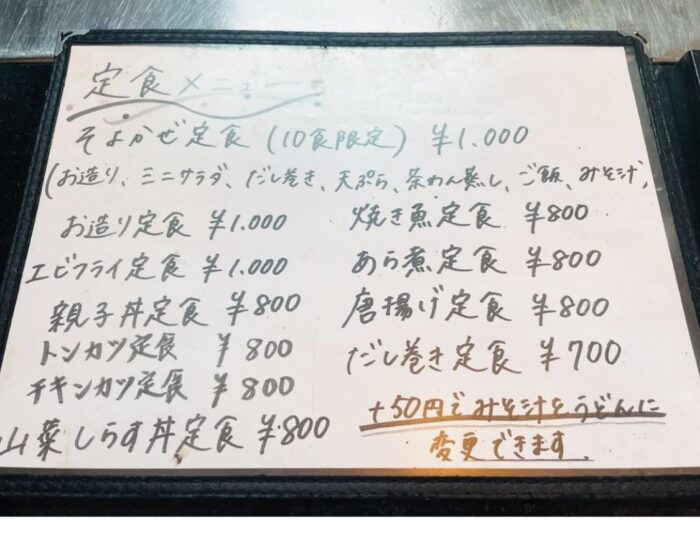 定食メニュー
そよかぜ定食(10食限定) ¥1.000
(お造り、ミニサラダ、だし巻き、天ぷら、茶わん蒸し、ご飯、みそ汁、
お造り定食 ¥1.000
エビフライ定食 ¥1.000
親子丼定食 ¥800
トンカツ定食 ¥800
チキンカツ定食 ¥800
山菜しらす丼定食 ¥800
焼き魚定食 ¥800
あら煮定食 ¥800
唐揚げ定食 ¥800
だし巻き定食 ¥700
+50円でみそ汁をうどんに
変更できます.